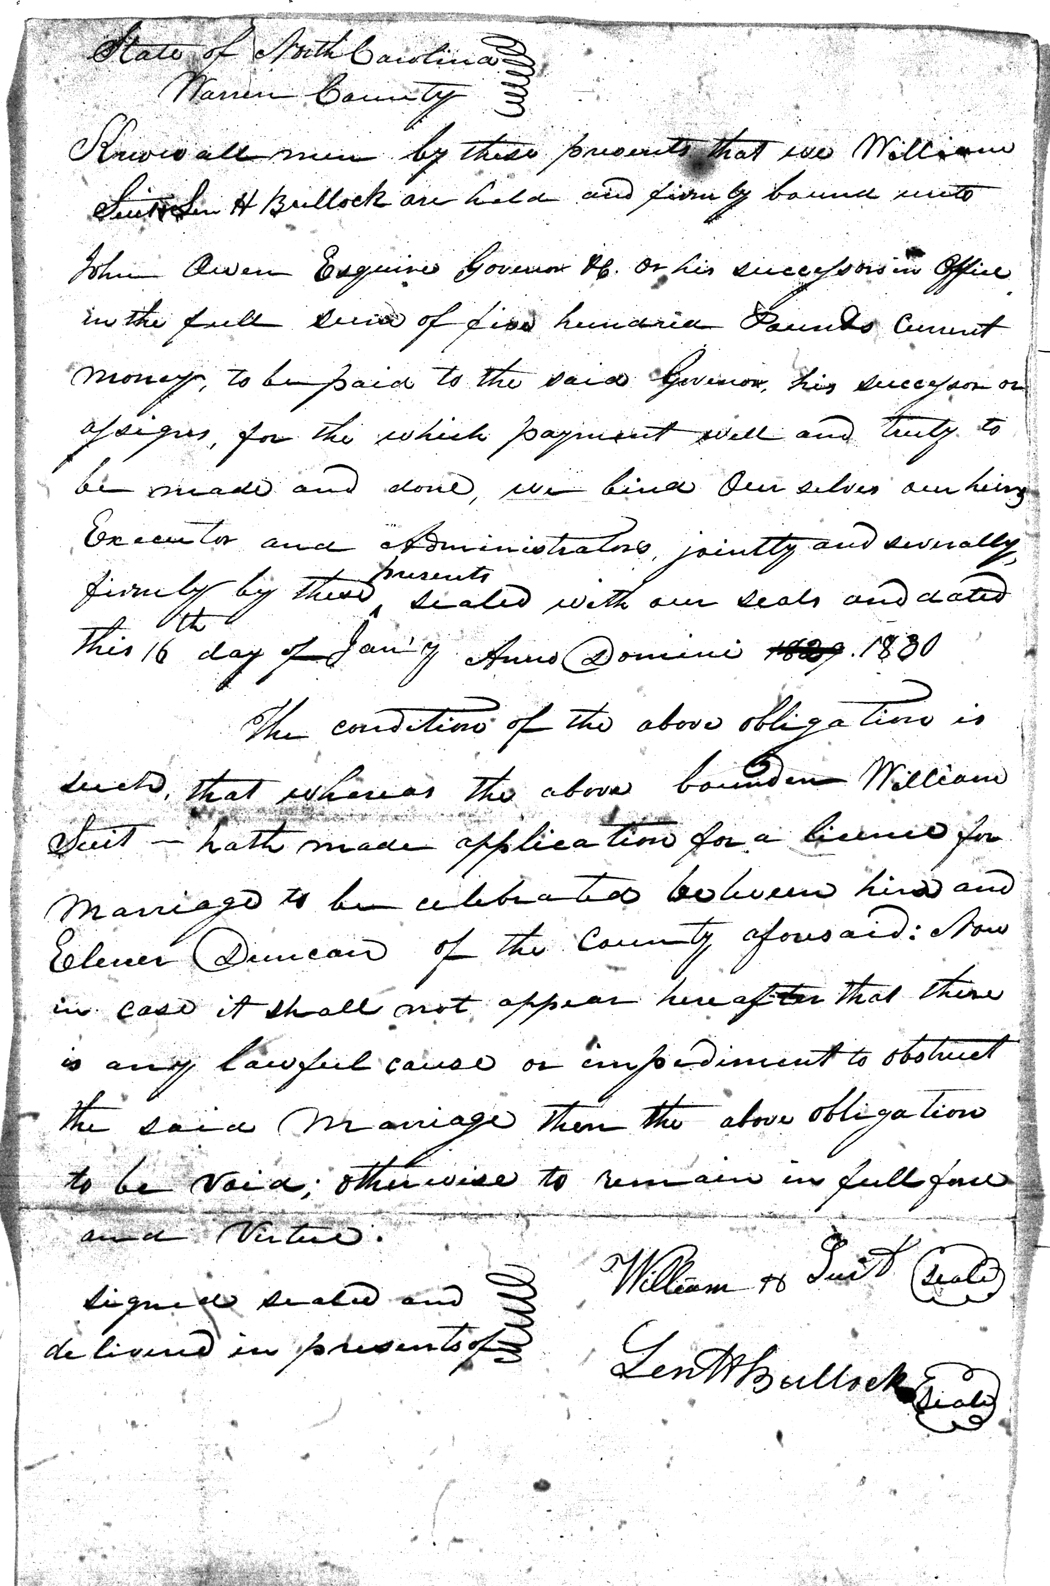 State of North Carolina
Warren County
Know all men by these presents that we William
Suit & Len H Bullock are held and firmly bound unto
John Owen Esquire Governor &c. or his successors in Office
in the full sum of five hundred Pounds Current
money, to be paid to the said Govenor, his successor or
assigns, for the which payment well and truly to
be made and done, we bind Our selves our heirs
Executor and Administrators, jointly and severally,
firmly by these presents sealed with our seals and dated
this 16th day of Jan'y Anno Domini 1829. 1830
The condition of the above obligation is
such, that whereas the above bounden William
Suit — hath made application for a licence for
Marriage to be celebrated between him and
Elener Duncan of the County aforesaid: Now
in case it shall not appear hereafter that there
is any lawful cause or impediment to obstruct
the said Marriage then the above obligation
to be void; otherwise to remain in full force
and Virtue.
signed sealed and
delivered in presents of
William Suit seale
Len H Bullock seale